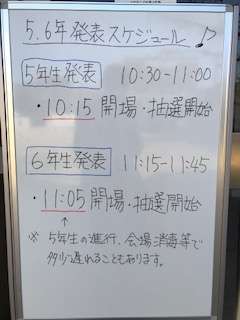 5.6年発表スケジュール♪
5年生発表 10:30-11:00
・10:15 開場・抽選開始
6年生発表 11:15-11:45
・11:05 開場・抽選開始
↑
※ 5年生の進行、会場消毒等で
多少遅れることもあります。